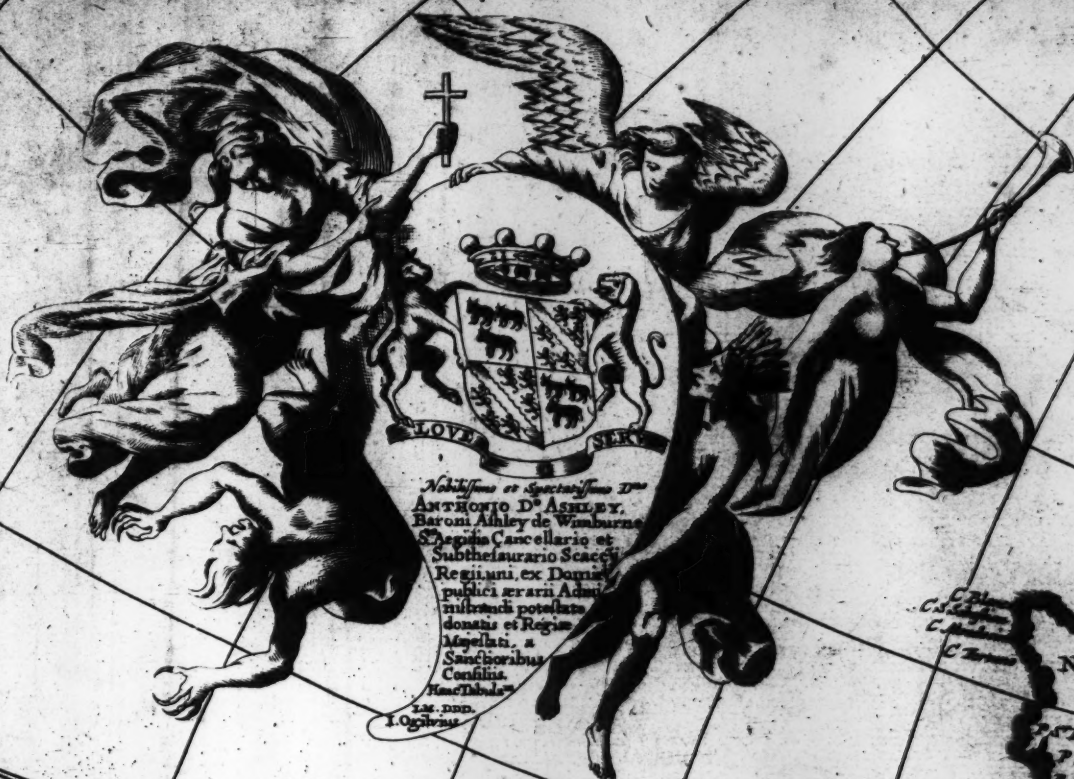 LOVE SERV
Nobilissimo et Spectatissimo Dno
ANTHONIO Do ASHLEY,
Baroni Ashley de Wimburne
Sti Aegidia Cancellario et
Subthesaurario Scaccii
Regii, uni, ex Domi
publici ærarii Admi
nistrandi potestate
donatis et Regiæ
Majestati, a
Sanctioribus
Consiliis.
Hanc Tabulam
LM. DDD.
I. Ogilvius
C. Blan
C. S. Sebastian
C.
C.
N